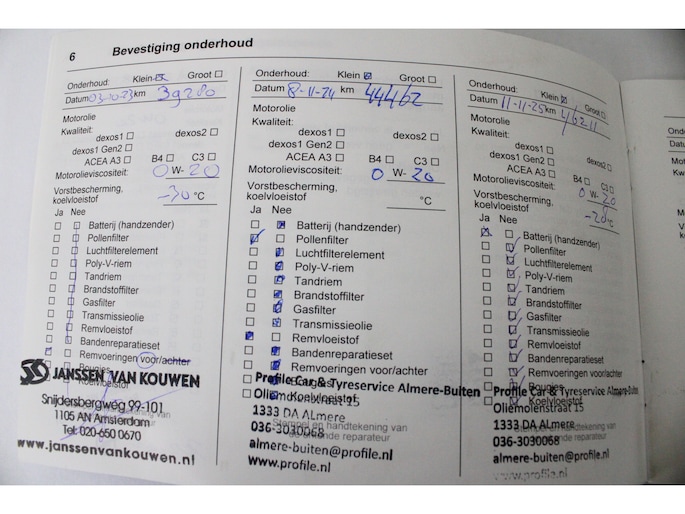 6 Bevestiging onderhoud
Onderhoud: Klein Groot
Datum 03-10-23 km 39280
Motorolie
Kwaliteit:
dexos1 dexos2
dexos1 Gen2
ACEA A3 B4 C3
Motorolieviscositeit: 0 W- 20
Vorstbescherming, koelvloeistof -30 °C
Ja Nee
Batterij (handzender)
Pollenfilter
Luchtfilterelement
Poly-V-riem
Tandriem
Brandstoffilter
Gasfilter
Transmissieolie
Remvloeistof
Bandenreparatieset
Remvoeringen voor/achter
Bougies
Koelvloeistof
JANSSEN VAN KOUWEN
Snijdersbergweg 99-101
1105 AN Amsterdam
Tel. 020-650 0670
www.janssenvankouwen.nl
Onderhoud: Klein Groot
Datum 8-11-24 km 44462
Motorolie
Kwaliteit:
dexos1 dexos2
dexos1 Gen2
ACEA A3 B4 C3
Motorolieviscositeit: 0 W- 20
Vorstbescherming,
koelvloeistof °C
Ja Nee
Batterij (handzender)
Pollenfilter
Luchtfilterelement
Poly-V-riem
Tandriem
Brandstoffilter
Gasfilter
Transmissieolie
Remvloeistof
Bandenreparatieset
Remvoeringen voor/achter
Bougies
Koelvloeistof
Profile Car & Tyreservice Almere-Buiten
Oliemolenstraat 15
1333 DA Almere
Stempel en handtekening van
036-3030068
de erkende reparateur
almere-buiten@profile.nl
www.profile.nl
Onderhoud: Klein Groot
Datum 11-11-25 km 46211
Motorolie
Kwaliteit:
dexos1 dexos2
dexos1 Gen2
ACEA A3 B4 C3
Motorolieviscositeit: 0 W- 20
Vorstbescherming,
koelvloeistof -20 °C
Ja Nee
Batterij (handzender)
Pollenfilter
Luchtfilterelement
Poly-V-riem
Tandriem
Brandstoffilter
Gasfilter
Transmissieolie
Remvloeistof
Bandenreparatieset
Remvoeringen voor/achter
Bougies
Koelvloeistof
Profile Car & Tyreservice Almere-Buiten
Oliemolenstraat 15
1333 DA Almere
036-3030068
almere-buiten@profile.nl
www.profile.nl